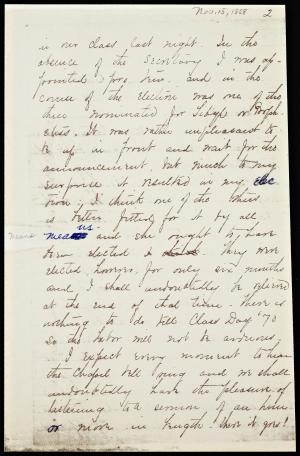 Nov. 15, 1868 2
in our class last night. In the
absence of the Secretary I was ap-
pointed pro. tem. and in the
course of the election was one of the
three nominated for Sibyl or Proph-
etess. It was rather unpleasant to
be up in front and wait for the
announcement, but much to my
surprise it resulted in my elec
tion. I think one of the others
is better fitted for it by all
means and she ought to have
been elected I think. They were
elected, however, for only six months
and I shall undoubtedly be relieved
at the end of that time. There is
nothing to do till Class Day '70
so the labor will not be arduous.
I expect every moment to hear
the Chapel bell ring and we shall
undoubtedly have the pleasure of
listening to a sermon of an hour
or more in length. There it goes!